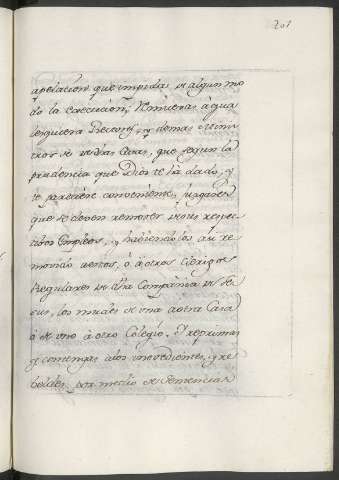 201
apelacion que impida de algun mo
do la execucion; Remueras à qua
lesquiera Rectores, y demas Minis
tros de vrãs Casas, que segun la
prudencia que Dios te há dado, y
te pareciere conveniente, juzgares
que se deven remover de sus respec
tivos Empleos, y haviendolos asi re
movido a estos, ó à otros Clerigos
Regulares de dha Compañia de Je
sus, los mudes de una a otra Casa
ó de uno à otro Colegio. Y reprimas
y contengas a los inobedientes, y re
beldes, por medio de Sentencias